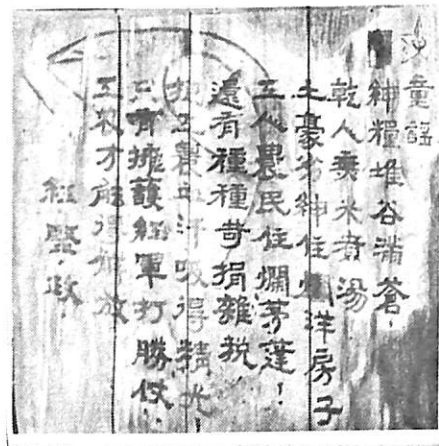 童謠
紳糧堆谷滿蒼,
乾人米煮湯
土豪劣紳住洋房子
工人農民住爛茅蓬!
還有種種苛捐雜稅
把工農血汗吸得精光!
只有擁護紅軍打勝仗!
工农才能得解放
紅堅.政.